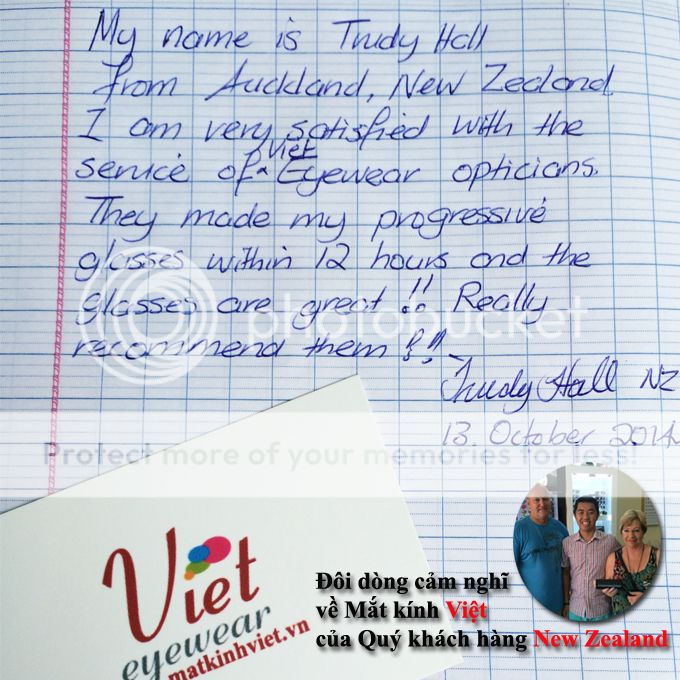 My name is Trudy Hall
from Auckland, New Zealand.
I am very satisfied with the
service of Viet Eyewear opticians.
They made my progressive
glasses within 12 hours and the
glasses are great !! Really
recommend them !!
Trudy Hall NZ
13. October 2014
photobucket
Protect more of your memories for less!
Viet
eyewear
matkinhviet.vn
Đôi dòng cảm nghĩ
về Mắt kính Việt
của Quý khách hàng New Zealand